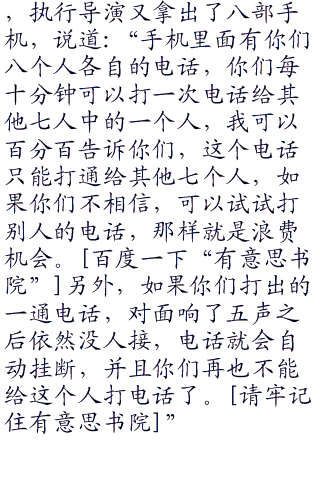 ，执行导演又拿出了八部手
机，说道：“手机里面有你们
八个人各自的电话，你们每
十分钟可以打一次电话给其
他七人中的一个人，我可以
百分百告诉你们，这个电话
只能打通给其他七个人，如
果你们不相信，可以试试打
别人的电话，那样就是浪费
机会。[百度一下“有意思书
院”]另外，如果你们打出的
一通电话，对面响了五声之
后依然没人接，电话就会自
动挂断，并且你们再也不能
给这个人打电话了。[请牢记
住有意思书院]”